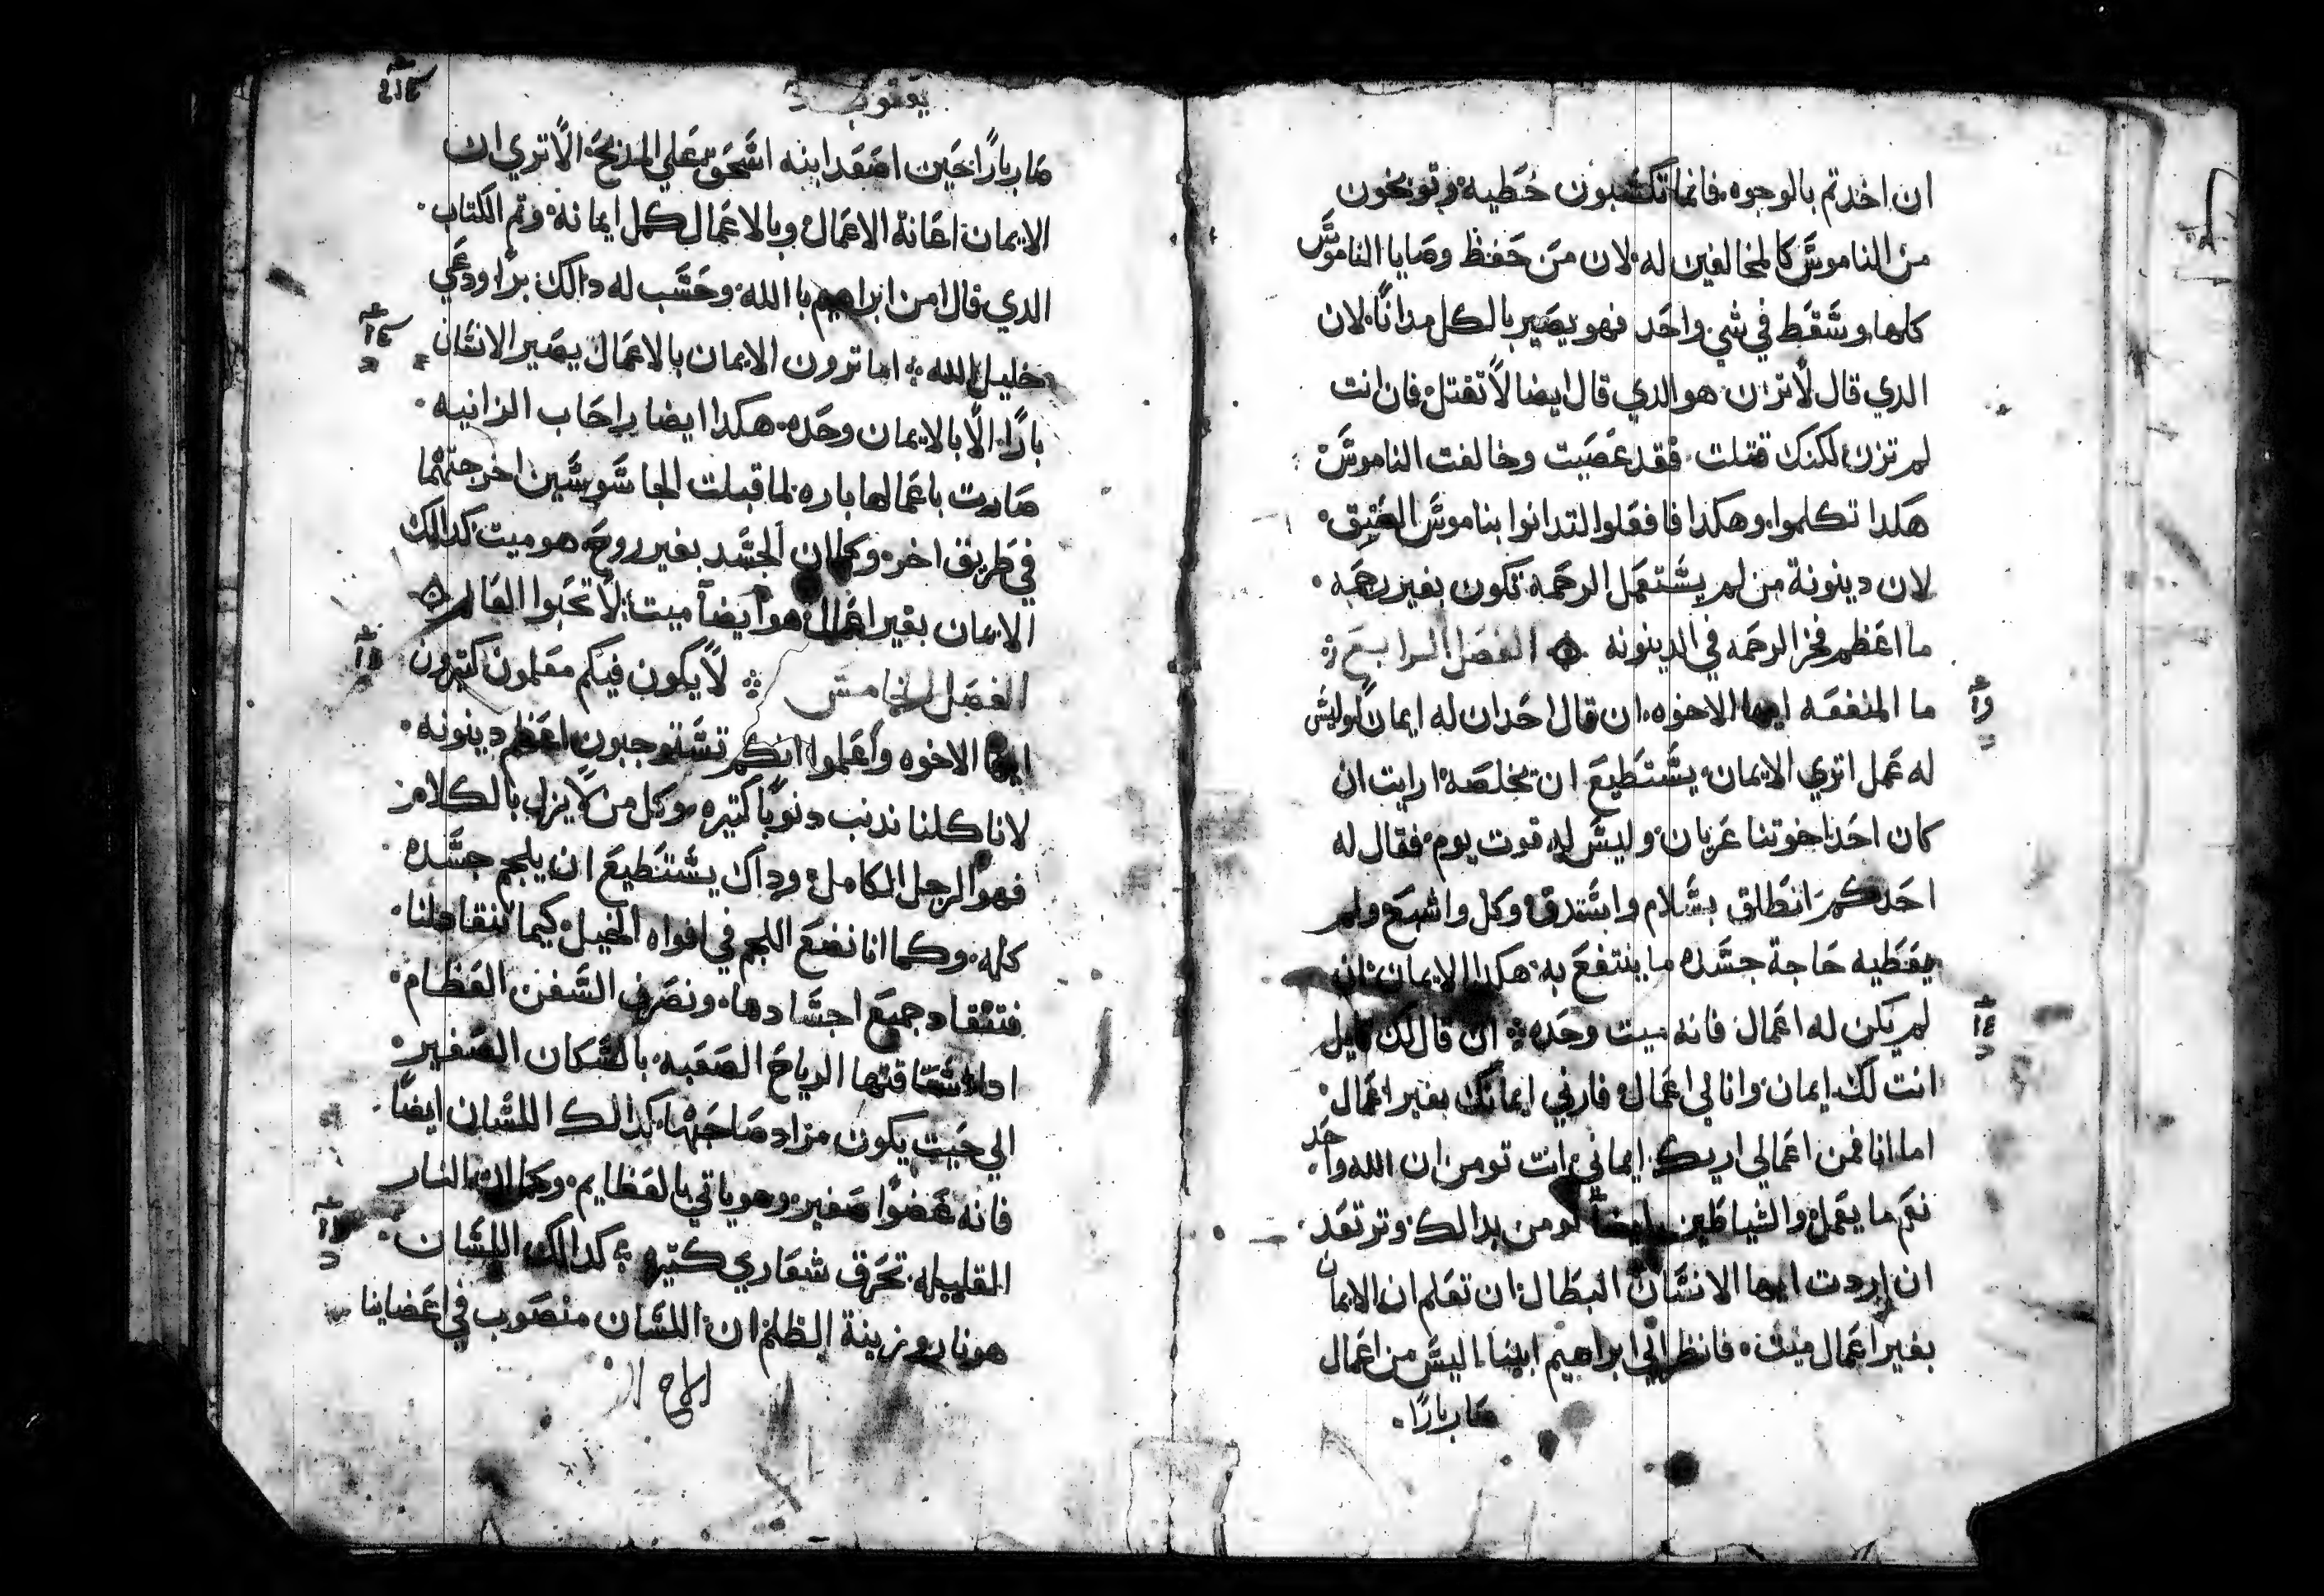 ان اخدتم بالوجوه فانما تكتسبون خطيه وتوبخون
من الناموس كالمخالفين له لان من حفظ وصايا الناموس
كلها وسقط في شي واحد فهو يصير بالكل مدانًا لان
الدي قال لاتزن هو الدي قال ايضا لاتقتل فان انت
لم تزن لكنك قتلت فقد عصيت وخالفت الناموس
هكدا تكلموا وهكدا فافعلوا لتدانوا بناموس العتق
لان دينونة من لم يستعمل الرحمه تكون بغير رحمه
ما اعظم فخر الرحمه في الدينونه الفصل الرابع
ما المنفعه ايها الاخوه ان قال احد ان له ايمان وليس
له عمل اتري الايمان يستطيع ان يخلصه ارايت ان
كان احد اخوتنا عريان وليس له قوت يوم فقال له
احدكم انطلق بسلام واستدق وكل واشبع ولم
يعطيه حاجة جسده ما ينتفع به هكدا الايمان ان
لم يكن له اعمال فانه ميت وحده ان قال لك قايل
انت لك ايمان وانا لي اعمال فارني ايمانك بغير اعمال
اما انا فمن اعمالي اريك ايماني انت تومن ان الله واحد
نعم ما يعمل والشياطين ايضا تومن بدالك وترتعد
ان اردت ايها الانسان البطال ان تعلم ان الايمان
بغير اعمال ميت فانظر الي ابراهيم ابينا اليس من اعمال
صار بارًا
يعقوب
صار بارًا حين اصعد ابنه اسحق علي المدبح الا تري ان
الايمان اعانة الاعمال وبالاعمال كمل ايمانه وتم الكتاب
الدي قال امن ابراهيم باالله وحسب له دالك برًا ودعي
خليل الله اما ترون الايمان بالاعمال يصير الانسان
بارًا الا بالايمان وحده هكدا ايضا راحاب الزانيه
صارت باعمالها باره لما قبلت الجاسوسين اخرجتهما
في طريق اخره وكما ان الجسد بغير روح هو ميت كدالك
الايمان بغير اعمال هو ايضًا ميت لا تحبوا العالم
الفصل الخامس لا يكون فيكم معلمون كتيرون
ايها الاخوه واعلموا انكم تستوجبون اعظم دينونه
لانا كلنا ندنب دنوبًا كتيره وكل من لا يزل بالكلام
فهو الرجل الكامل وداك يستطيع ان يلجم جسده
كله وكما انا نضع اللجم في افواه الخيل كيما تنقاد لنا
فتنقاد جميع اجسادها ونصرف السفن العظام
ادا استاقتها الرياح الصعبه بالسكان الصغير
الي حيت يكون مراد صاحبها كدالك اللسان ايضًا
فانه عضوًا صغير وهو ياتي بالعظايم وكما ان النار
القليله تحرق شعاري كتيره كدالك اللسان
هو نار وزينة الظلم ان اللسان منصوب في اعضاينا